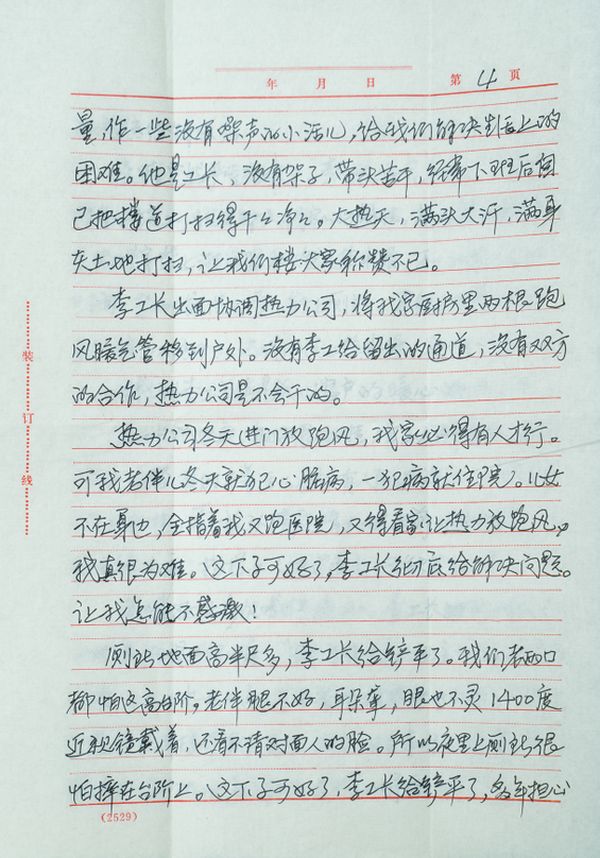 年 月 日 第 4 页
量,作一些没有噪声的小活儿,给我们解决封后上的
困难。他是工长,没有架子,带头苦干,经常下班后自
己把楼道打扫得干干净净。大热天,满头大汗,满身
灰土地打扫,让我们楼大家称赞不已。
李工长出面协调热力公司,将我家厨房里两根跑
风暖气管移到户外。没有李工给留出的通道,没有双方
的合作,热力公司是不会干的。
热力公司冬天进门放跑风,我家必得有人才行。
可我老伴儿冬天就犯心脏病,一犯病就住院。儿女
不在身边,全指着我又跑医院,又得看家让热力放跑风,
我真很为难。这下子可好了,李工长彻底给解决问题。
让我怎能不感激!
厕所地面高半尺多,李工长给铲平了。我们老两口
都怕这高台阶,老伴腿不好,耳朵聋,眼也不灵1400度
近视镜戴着,还看不清对面人的脸。所以夜里上厕所很
怕摔在台阶上。这下子可好了,李工长给铲平了,多年担心
装订线
(2529)